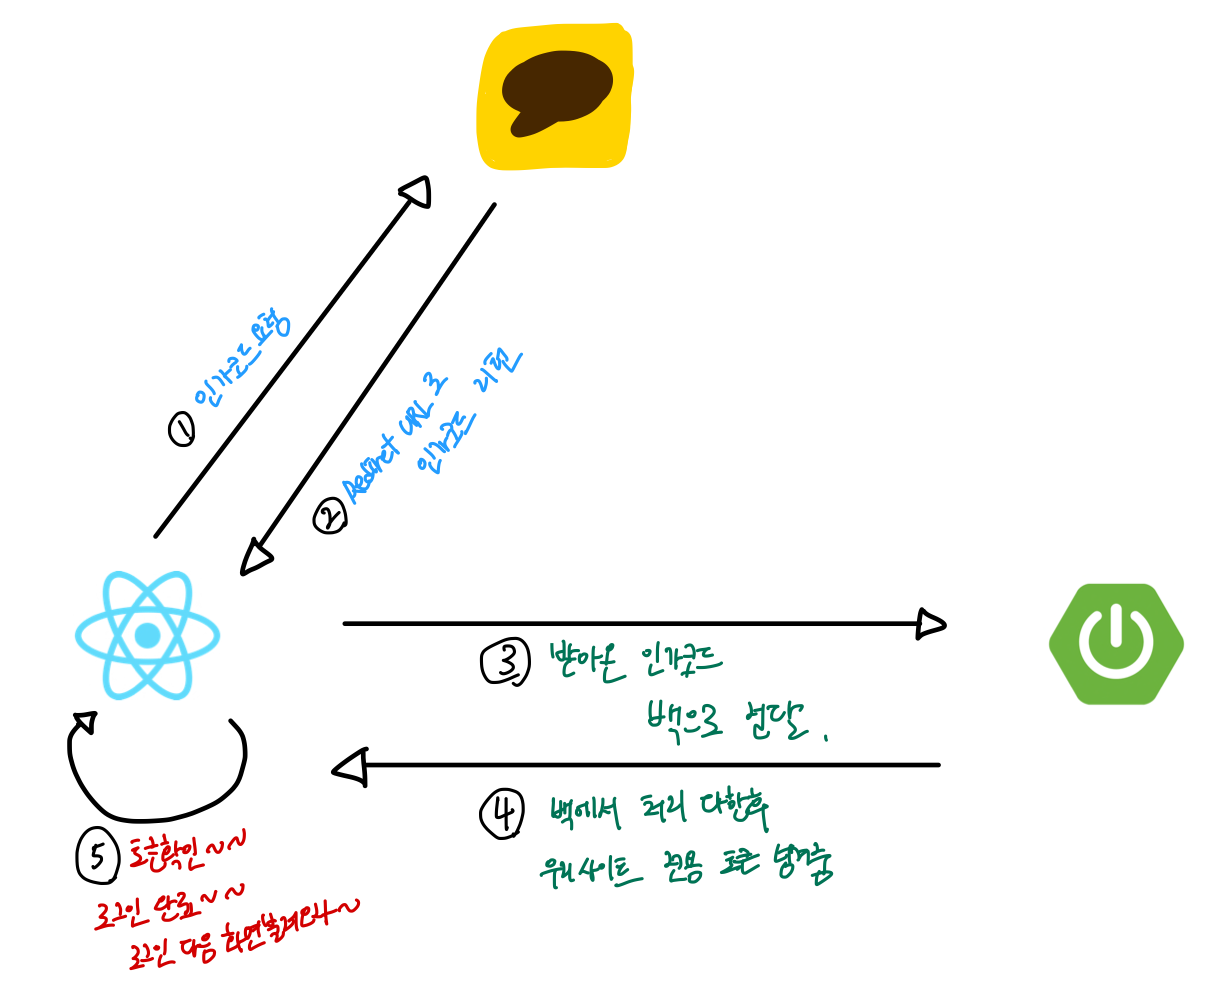 ① 인가코드 요청
② Redirect URL 로
인가코드 리턴
③ 받아온 인가코드
백으로 전달.
④ 백에서 처리 다한후
우리사이트 전용 토큰 넘겨줌
⑤ 토큰확인~~
로그인 완료~~
로그인 다음 화면불러오자~